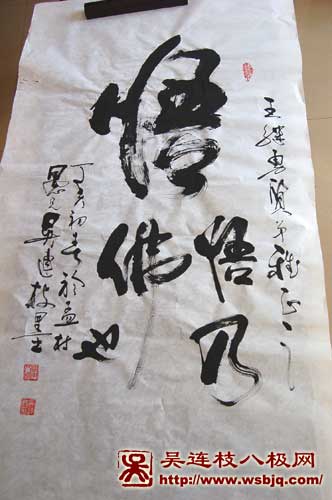 王继贤弟雅正
悟
悟乃
佛也
丁亥初春於孟村
愚兄吴连枝
吴连枝八极网
http://www.wsbjq.com/